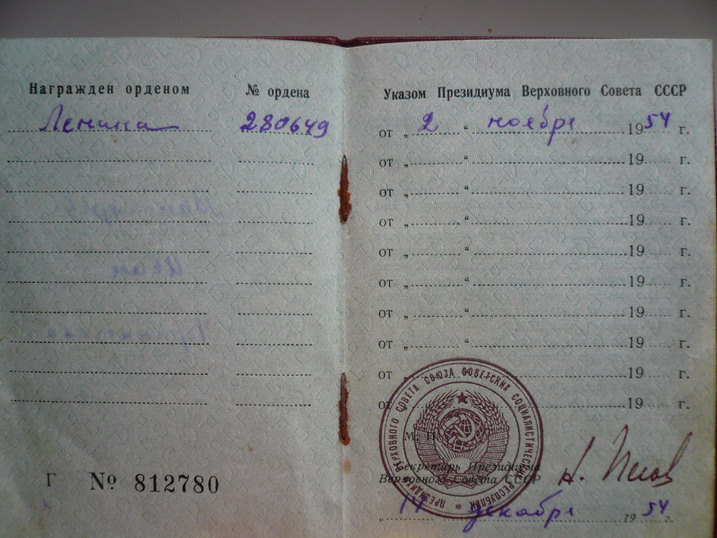 Награжден орденом
№ ордена
Ленина
280649
Г № 812780
Указом Президиума Верховного Совета СССР
от „ 2 “ ноября 1954 г.
от „ “ 19 г.
от „ “ 19 г.
от „ “ 19 г.
от „ “ 19 г.
от „ “ 19 г.
от „ “ 19 г.
от „ “ 19 г.
от „ “ 19 г.
от „ “ 19 г.
М. П.
ПРЕЗИДИУМ ВЕРХОВНОГО СОВЕТА СОЮЗА СОВЕТСКИХ СОЦИАЛИСТИЧЕСКИХ РЕСПУБЛИК
Секретарь Президиума
Верховного Совета СССР
Н. Пегов
„ “ декабря 1954 г.